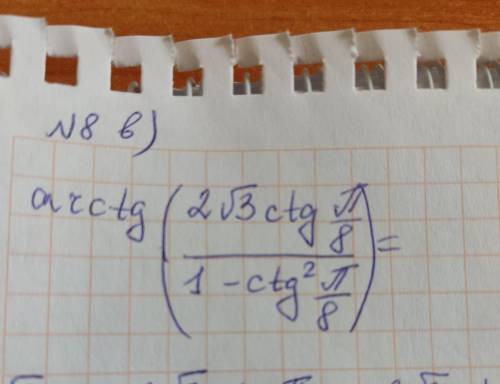 N8 в)
arctg (2√3 ctg π/8 / 1 - ctg² π/8) =